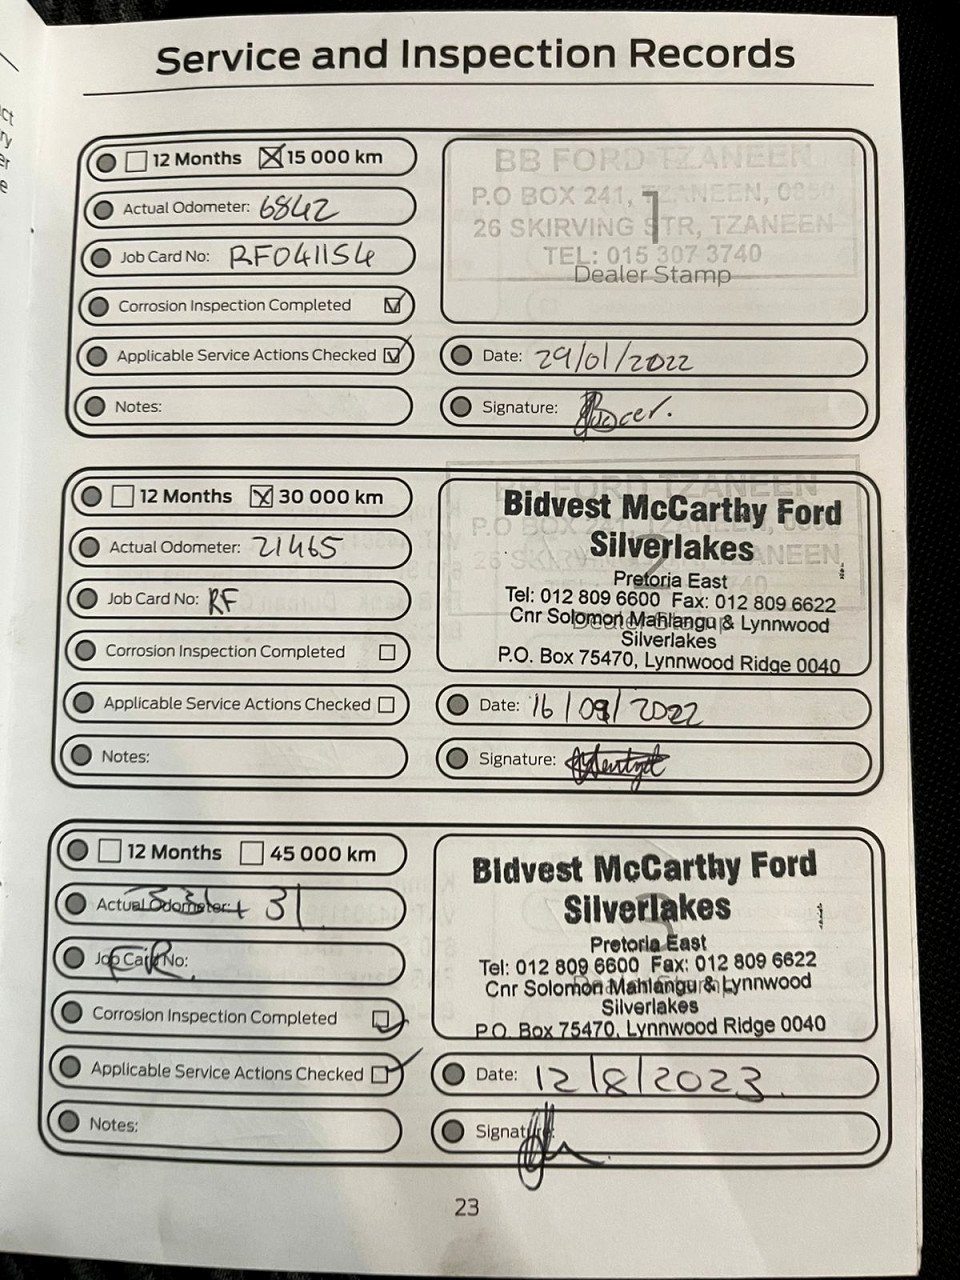 Service and Inspection Records
12 Months 15 000 km
Actual Odometer: 6842
Job Card No: RF041154
Corrosion Inspection Completed
Applicable Service Actions Checked
Notes:
BB FORD TZANEEN
P.O BOX 241, TZANEEN, 0850
1
26 SKIRVING STR, TZANEEN
TEL: 015 307 3740
Dealer Stamp
Date: 29/01/2022
Signature:
12 Months 30 000 km
Actual Odometer: 21465
Job Card No: RF
Corrosion Inspection Completed
Applicable Service Actions Checked
Notes:
BB FORD TZANEEN
Bidvest McCarthy Ford
P.O BOX 241, TZANEEN, 0850
Silverlakes
2
Pretoria East
Tel: 012 809 6600 Fax: 012 809 6622
Cnr Solomon Mahlangu & Lynnwood
Dealer Stamp
Silverlakes
P.O. Box 75470, Lynnwood Ridge 0040
Date: 16/09/2022
Signature:
12 Months 45 000 km
Actual Odometer:
Job Card No:
Corrosion Inspection Completed
Applicable Service Actions Checked
Notes:
Bidvest McCarthy Ford
Silverlakes
3
Pretoria East
Tel: 012 809 6600 Fax: 012 809 6622
Cnr Solomon Mahlangu & Lynnwood
Dealer Stamp
Silverlakes
P.O. Box 75470, Lynnwood Ridge 0040
Date: 12/8/2023
Signature:
23